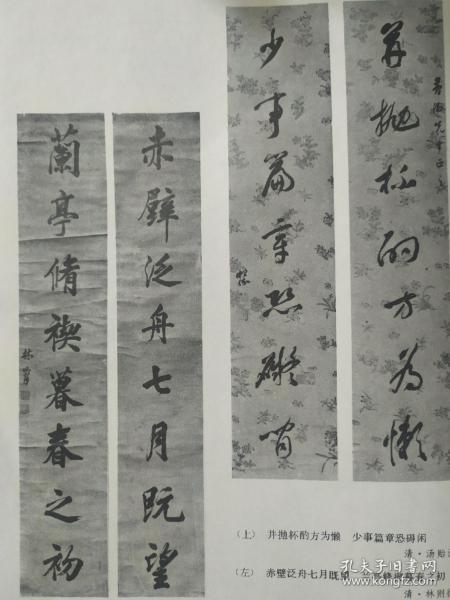 并拋杯酌方為懶
少事篇章恐礙閒
赤壁泛舟七月既望
蘭亭脩禊暮春之初
（上） 并抛杯酌方为懒 少事篇章恐碍闲
清·汤贻
（左） 赤壁泛舟七月既望 之初
清·林则
孔夫子旧书网